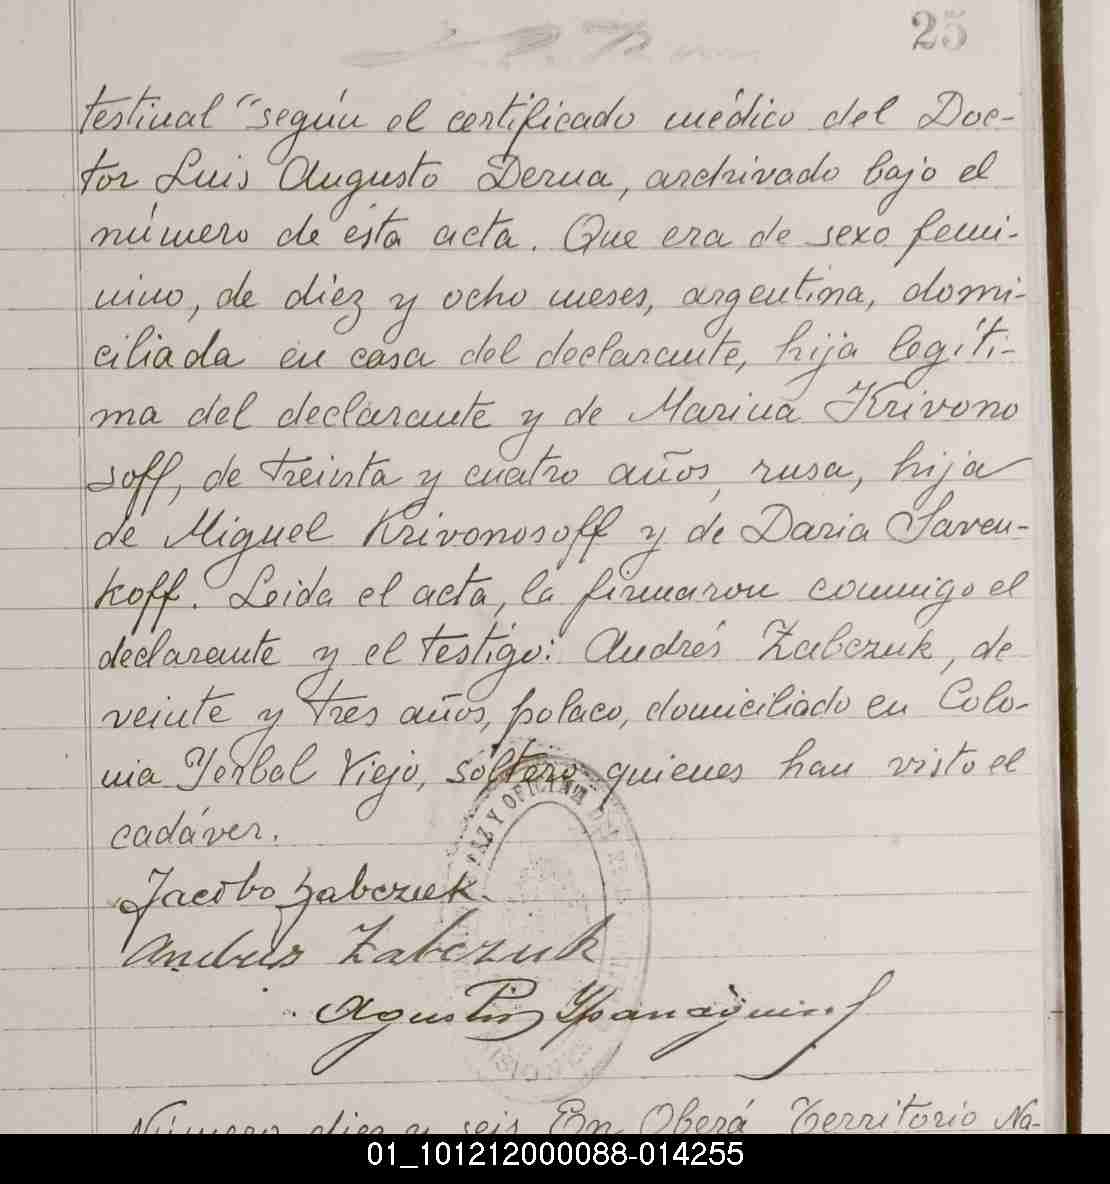 25
testinal" según el certificado médico del Doc-
tor Luis Augusto Derna, archivado bajo el
número de ésta acta. Que era de sexo femi-
nino, de diez y ocho meses, argentina, domi-
ciliada en casa del declarante, hija legíti-
ma del declarante y de Marina Krivono
soff, de treinta y cuatro años, rusa, hija
de Miguel Krivonosoff y de Daria Saven-
koff. Leida el acta, la firmaron conmigo el
declarante y el testigo: Andrés Zabczuk, de
veinte y tres años, polaco, domiciliado en Colo-
nia Yerbal Viejo, soltero, quienes han visto el
cadáver.
Jacobo Zabczuk.
Andres Zabczuk
Agustin
Número diez y seis En Oberá Territorio Na-
01_101212000088-014255